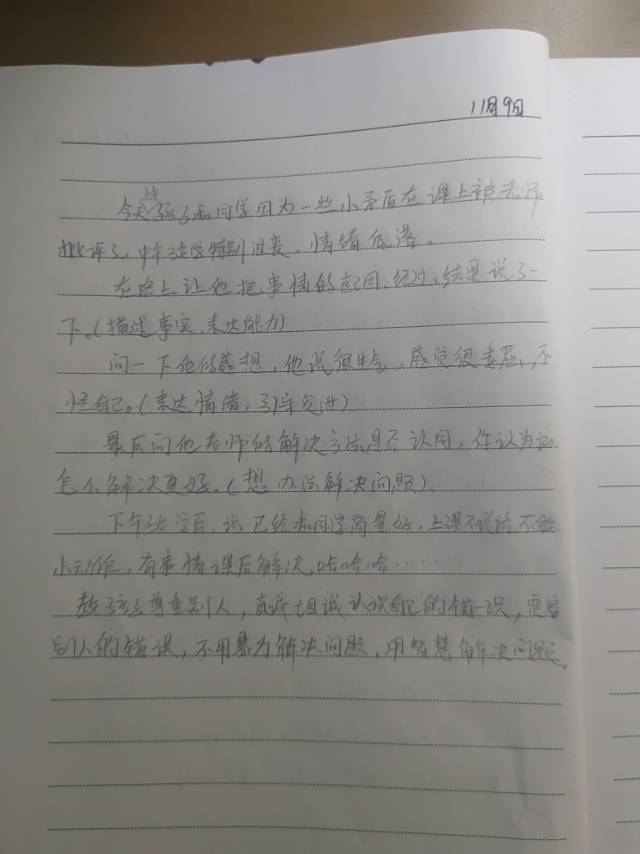 11月9日
今天上午孩子和同学因为一些小矛盾在课上被老师
批评了,中午放学特别沮丧,情绪低落。
在路上让他把事情的起因,经过,结果说了一
下。(描述事实,表达能力)
问一下他的感想,他说很生气,感觉很委屈,不
怪自己。(表达情绪,引导发泄)
最后问他老师的解决方法是否认同,你认为该
怎么解决更好。(想办法解决问题)
下午放学后,说已经和同学商量好,上课不说话不做
小动作,有事情课后解决,哈哈哈……
教孩子尊重别人,真诚坦诚认识自己的错误,宽容
别人的错误,不用暴力解决问题,用智慧解决问题。